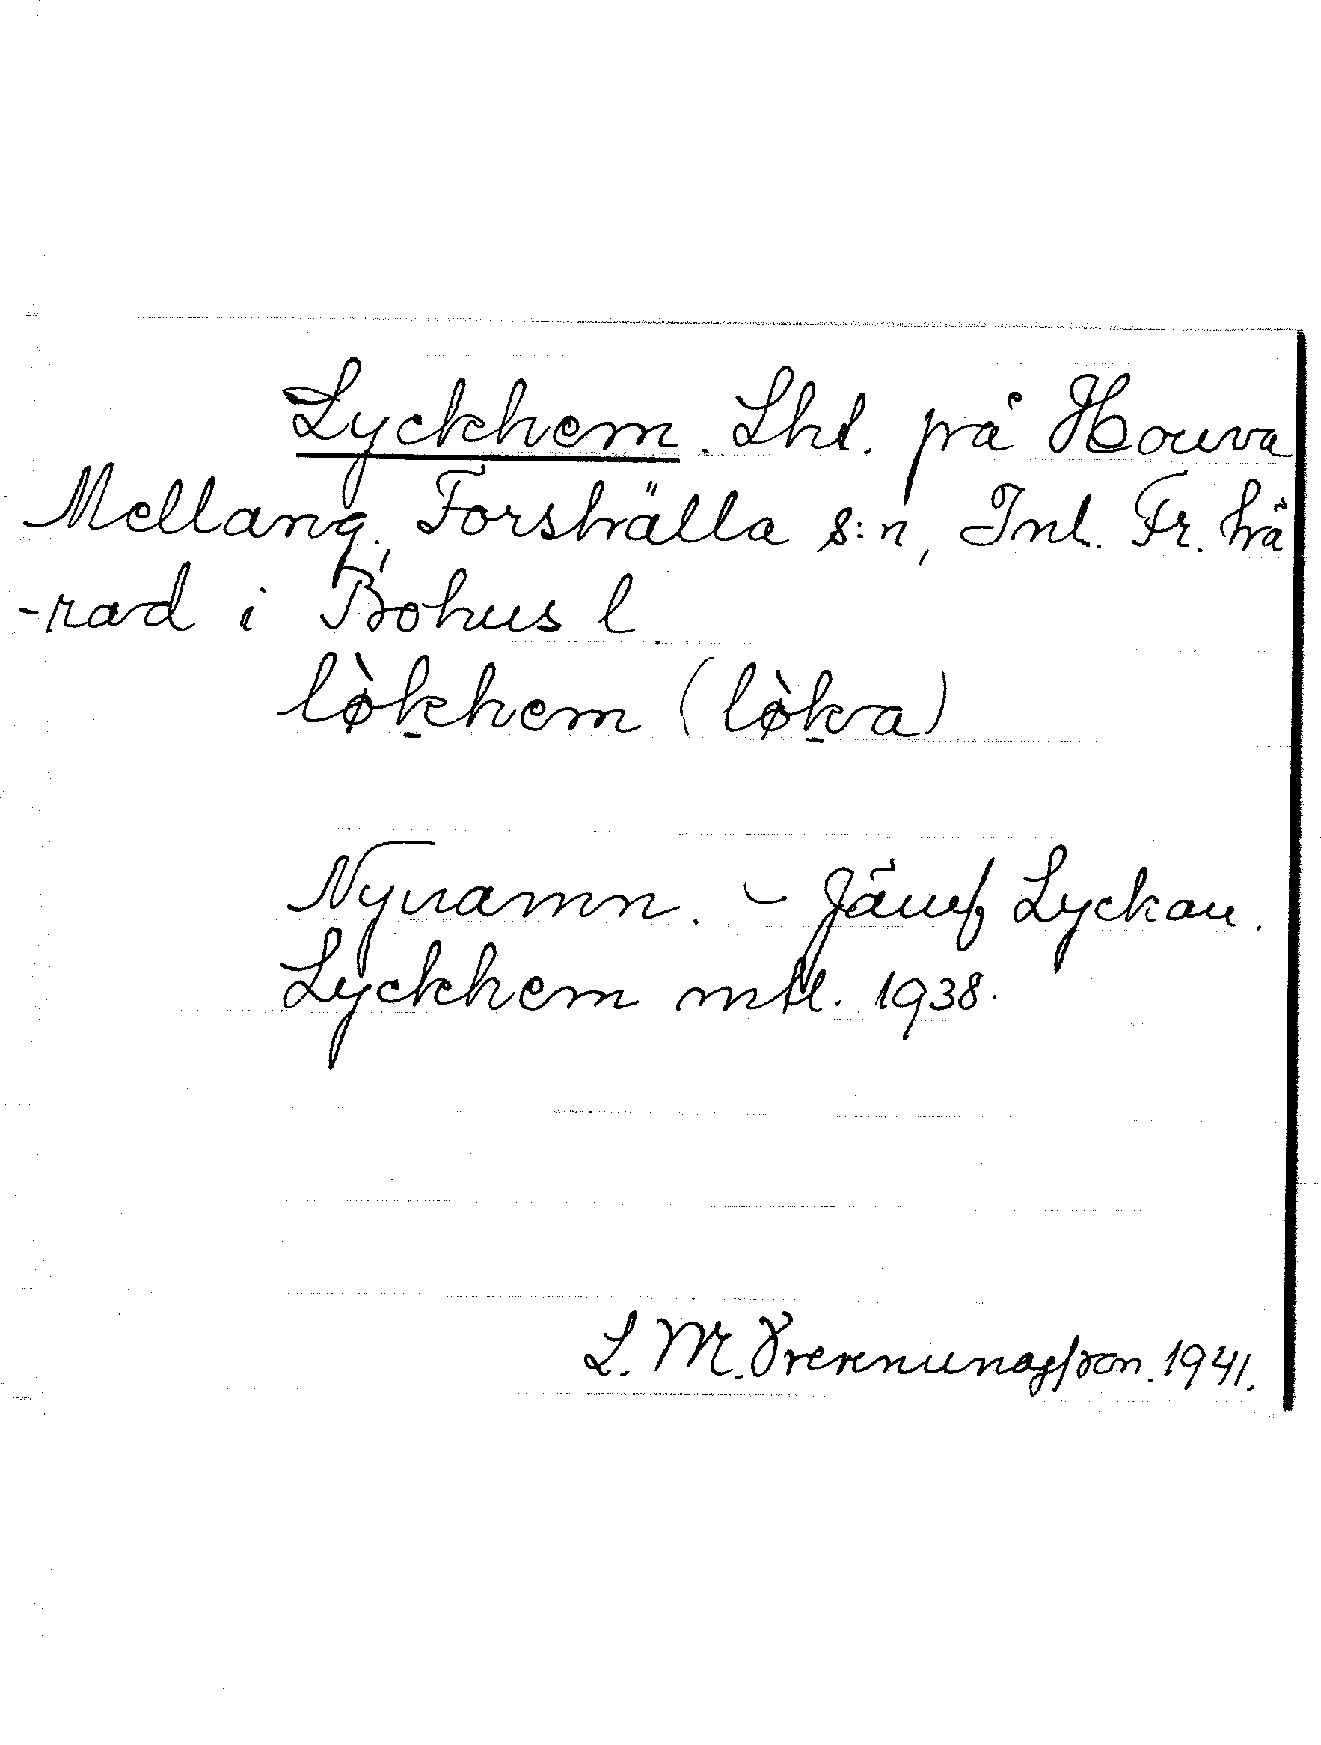 Lyckhem. Lht. på Houva
Mellang, Forshälla s:n, Inl. Fr. hä
-rad i Bohus l
lø̀khem (lø̀kra)
Nynamn. – Jämf Lyckan.
Lyckhem mtl. 1938.
L. M. 1941.